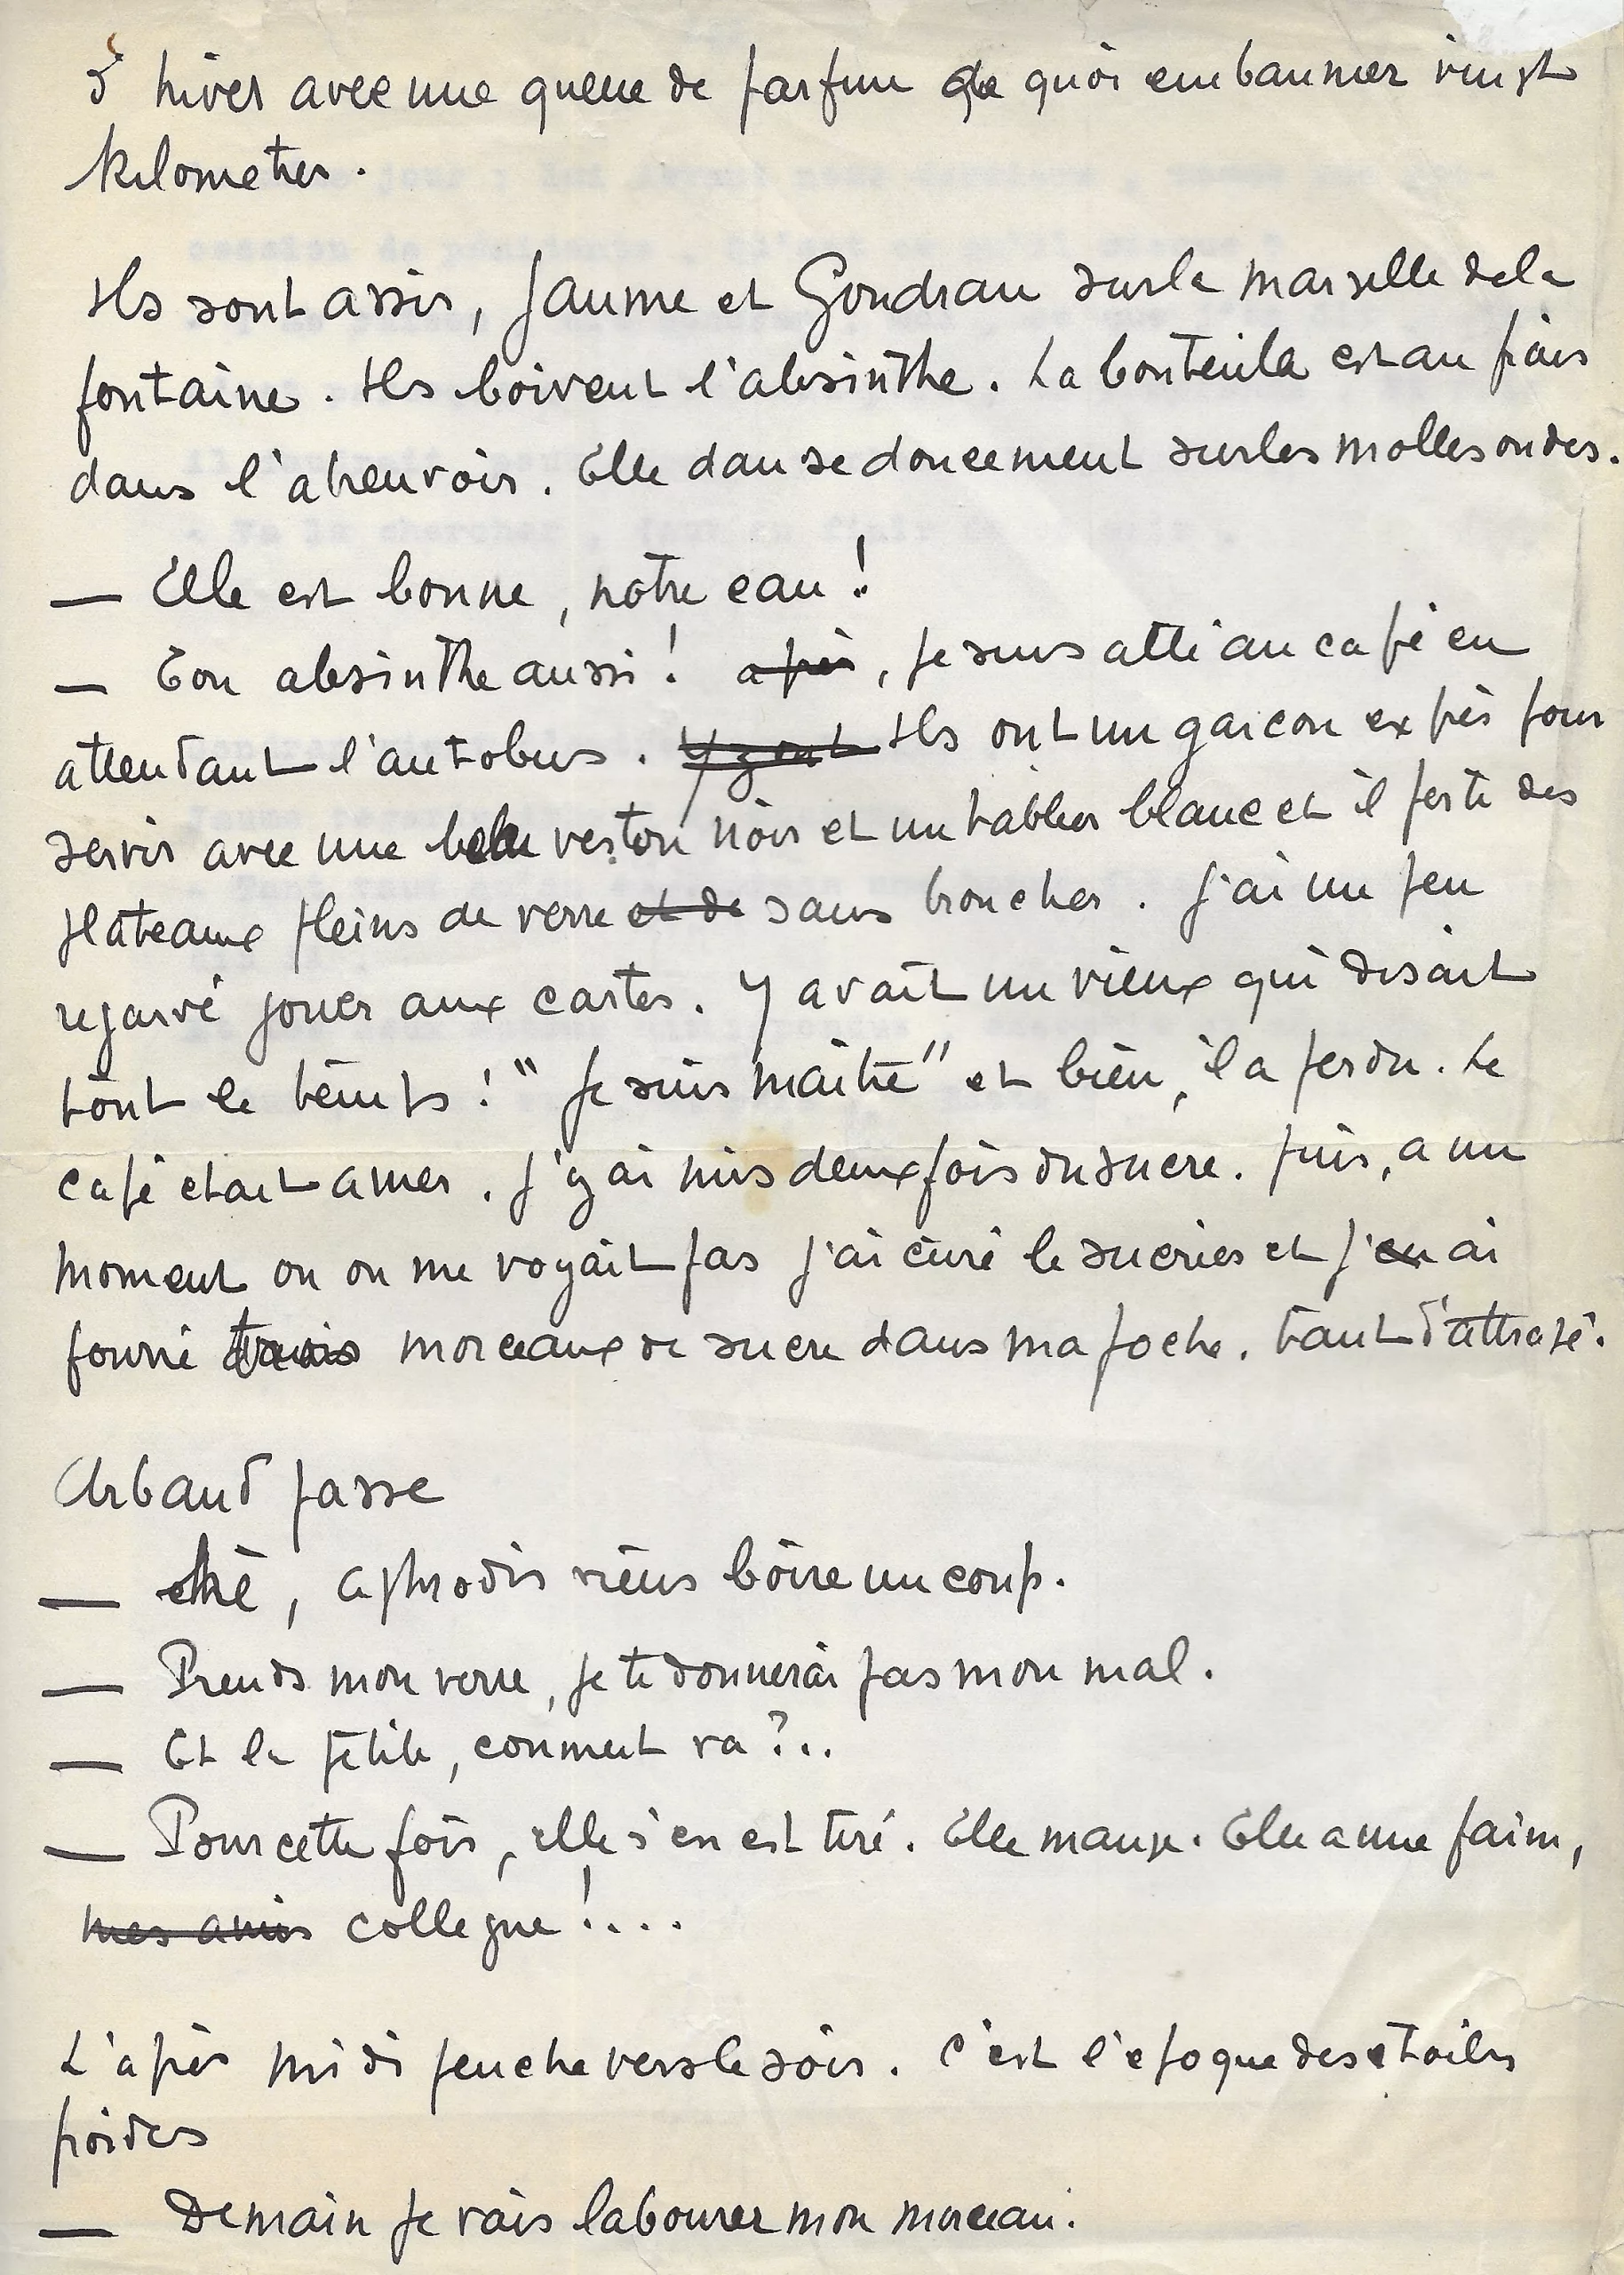 d'hiver avec une queue de parfum de quoi embaumer vingt
kilometres.
Ils sont assis, Jaume et Gondran sur le marselle de la
fontaine. Ils boivent l'absinthe. La bouteille est au frais
dans l'abreuvoir. Elle danse doucement sur les molles ondes.
— Elle est bonne, notre eau !
— Ton absinthe aussi ! après, je suis allé au café en
attendant l'autobus. Y zont Ils ont un garcon exprès pour
servir avec une belle veston noir et un tablier blanc et il porte des
plateaux pleins de verre et de sans broncher. J'ai un peu
regardé jouer aux cartes. Y avait un vieux qui disait
tout le temps : "Je suis maître" et bien, il a perdu. Le
café etait amer. J'y ai mis deux fois du sucre. Puis, a un
moment ou on me voyait pas j'ai curé le sucrier et j'en ai
fourré trois morceaux de sucre dans ma poche. Tant d'attrapé.
Arbaud passe
— ehè, aphrodis viens boire un coup.
— Prends mon verre, je te donnerai pas mon mal.
— Et la petite, comment va ?..
— Pour cette fois, elle s'en est tiré. Elle mange. Elle a une faim,
mes amis collegue !....
L'après midi penche vers le soir. C'est l'epoque des etoiles
froides
— Demain je vais labourer mon morceau.